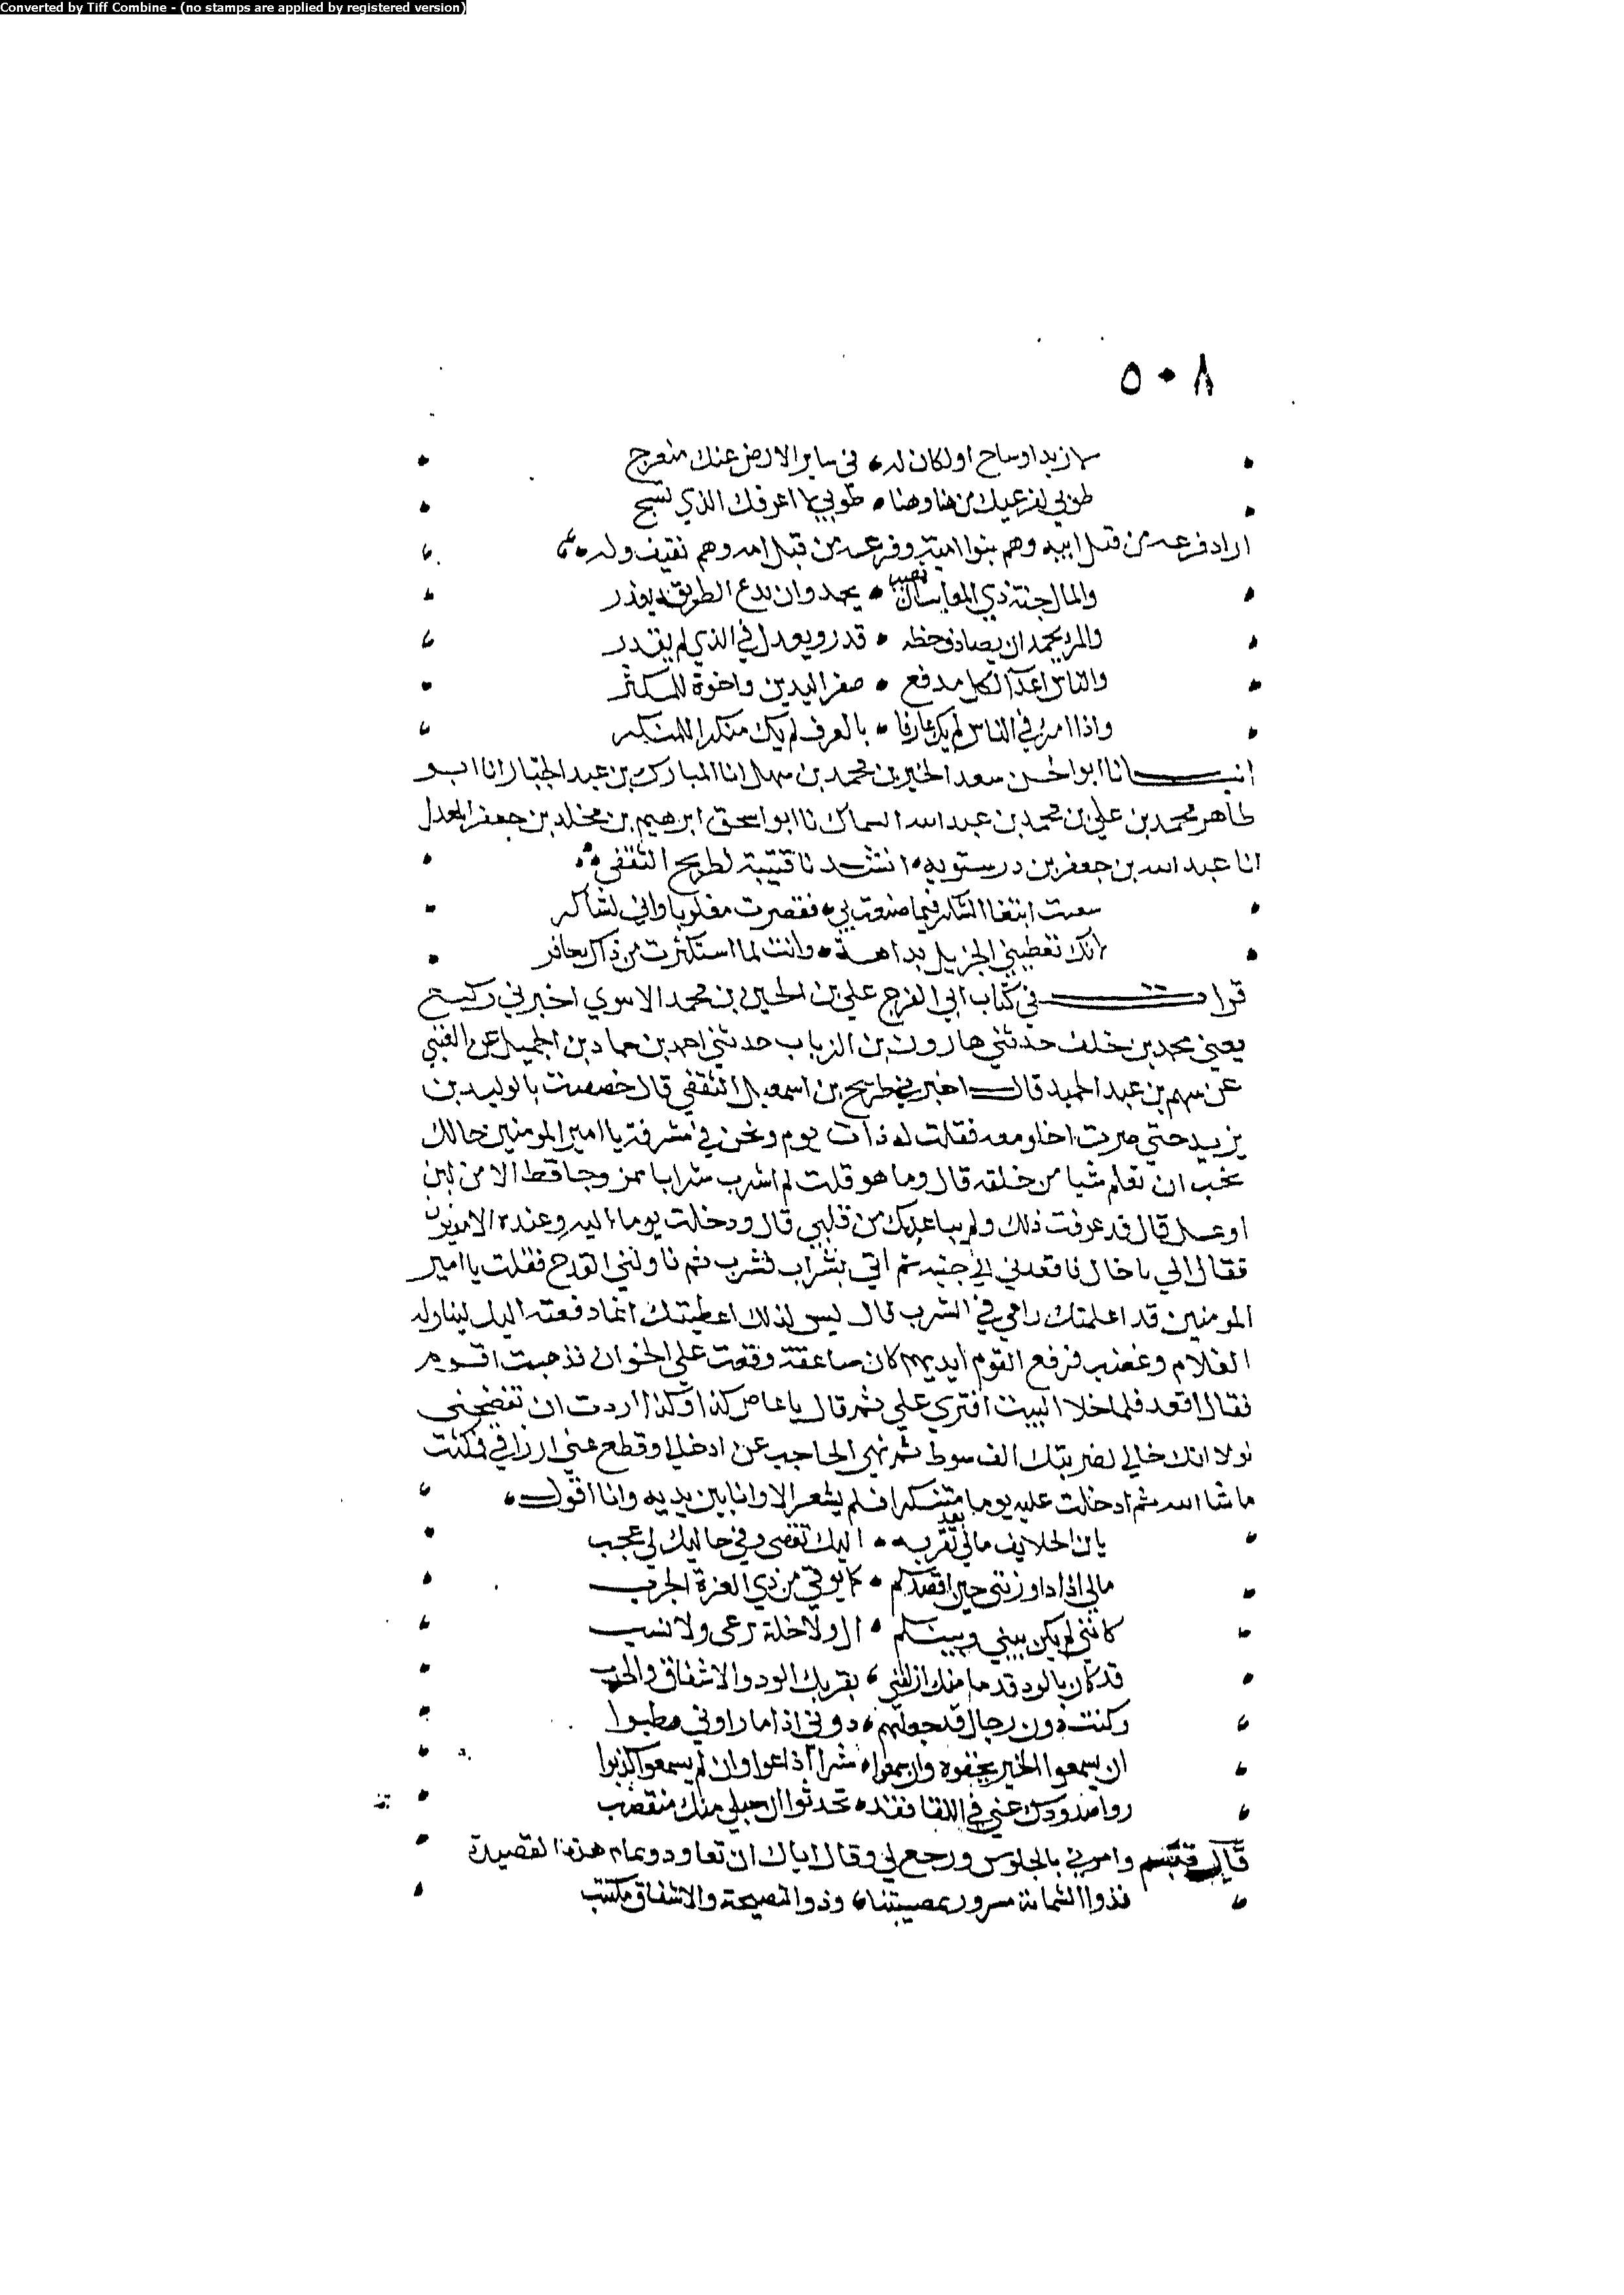 Converted by Tiff Combine - (no stamps are applied by registered version)
٥٠٨
لارتد او ساح او لكان له في ساير الارض عنك منعرج
طوبي لفرعيك من هنا وهنا طوبي لاعرافك الذي تشج
اراد فرعه من قبل ابيه وهم بنوا امية وفرعه من قبل امه وهم ثقيف وله
والمال جنة ذي المعايب ان يصب يحمد وان يدع الطريق يعذر
والمرء يحمد ان يصادف حظه قدر ويعدل في الذي لم يقدر
والناس اعدآ لكل مدفع صفر اليدين واخوة للمكثر
واذا امرؤ في الناس لم يك عارفا بالعرف لم يك منكرا للمنكر
انبانا ابو الحسن سعد الخير بن محمد بن سهل انا المبارك بن عبد الجبار انا ابو
طاهر محمد بن علي بن محمد بن عبد الله السماك نا ابو اسحق ابرهيم بن مخلد بن جعفر المعدل
انا عبد الله بن جعفر بن درستويه انشدنا قتيبة لطريح الثقفي
سعيت ابتغا الشكر فيما صنعت بي فقصرت مغلوبا واني لشاكر
لانك تعطيني الجزيل بداهة وانت لما استكثرت من ذاك حاقر
قرات في كتاب ابي الفرج علي بن الحسين بن محمد الاموي اخبرني وكيع
يعني محمد بن خلف حدثني هارون بن الزيات حدثني احمد بن حماد بن الجميل عن العتبي
عن سهم بن عبد الحميد قال اخبرني طريح بن اسمعيل الثقفي قال خصصت بالوليد بن
يزيد حتي صرت اخلو معه فقلت له ذات يوم ونحن في مشرفة يا امير المومنين خالك
يحب ان تعلم شيا من خلقه قال وما هو قلت لم اشرب شرابا ممزوجا قط الا من لبن
او عسل قال قد عرفت ذلك ولم يباعدك من قلبي قال ودخلت يوما اليه وعنده الامويون
فقال الي يا خال فاقعدني الي جنبه ثم اتي بشراب فشرب ثم ناولني القدح فقلت يا امير
المومنين قد اعلمتك رايي في الشرب قال ليس لذلك اعطيتك انما دفعته اليك ليناوله
الغلام وغضب فرفع القوم ايديهم كان صاعقة وقعت علي الخوان فذهبت اقوم
فقال اقعد فلما خلا البيت افتري علي ثم قال يا عاض كذا وكذا اردت ان تفضحني
لولا انك خالي لضربتك الف سوط ثم نهي الحاجب عن ادخالي وقطع عني ارزاقي فمكثت
ما شا الله ثم دخلت عليه يوما متنكرا فلم يشعر الا وانا بين يديه وانا اقول
يابن الخلايف مالي بعد تقربه اليك تقصي وفي حاليك لي عجب
مالي اذاد واوزني حين اقصدكم كما يوقي من ذي العزة الجرب
كانني لم يكن بيني وبينكم ال ولا خلة ترعي ولا نسب
قد كان بالود قدما منك ازلفني بقربك الود والاشفاق والحدب
وكنت دون رجال قد جعلتهم دوني اذا ما راوني قطبوا
ان يسمعوا الخير يخفوه وان سمعوا شرا اذاعوا وان لم يسمعوا كذبوا
راوا صدودك عني في اللقا فقد تحدثوا ان حبلي منك منقضب
قال فتبسم وامرني بالجلوس ورجع لي وقال اياك ان تعاود وتمام هذه القصيدة
فذوا الشماتة مسرور بمصيبتنا وذو النصيحة والاشفاق مكتئب